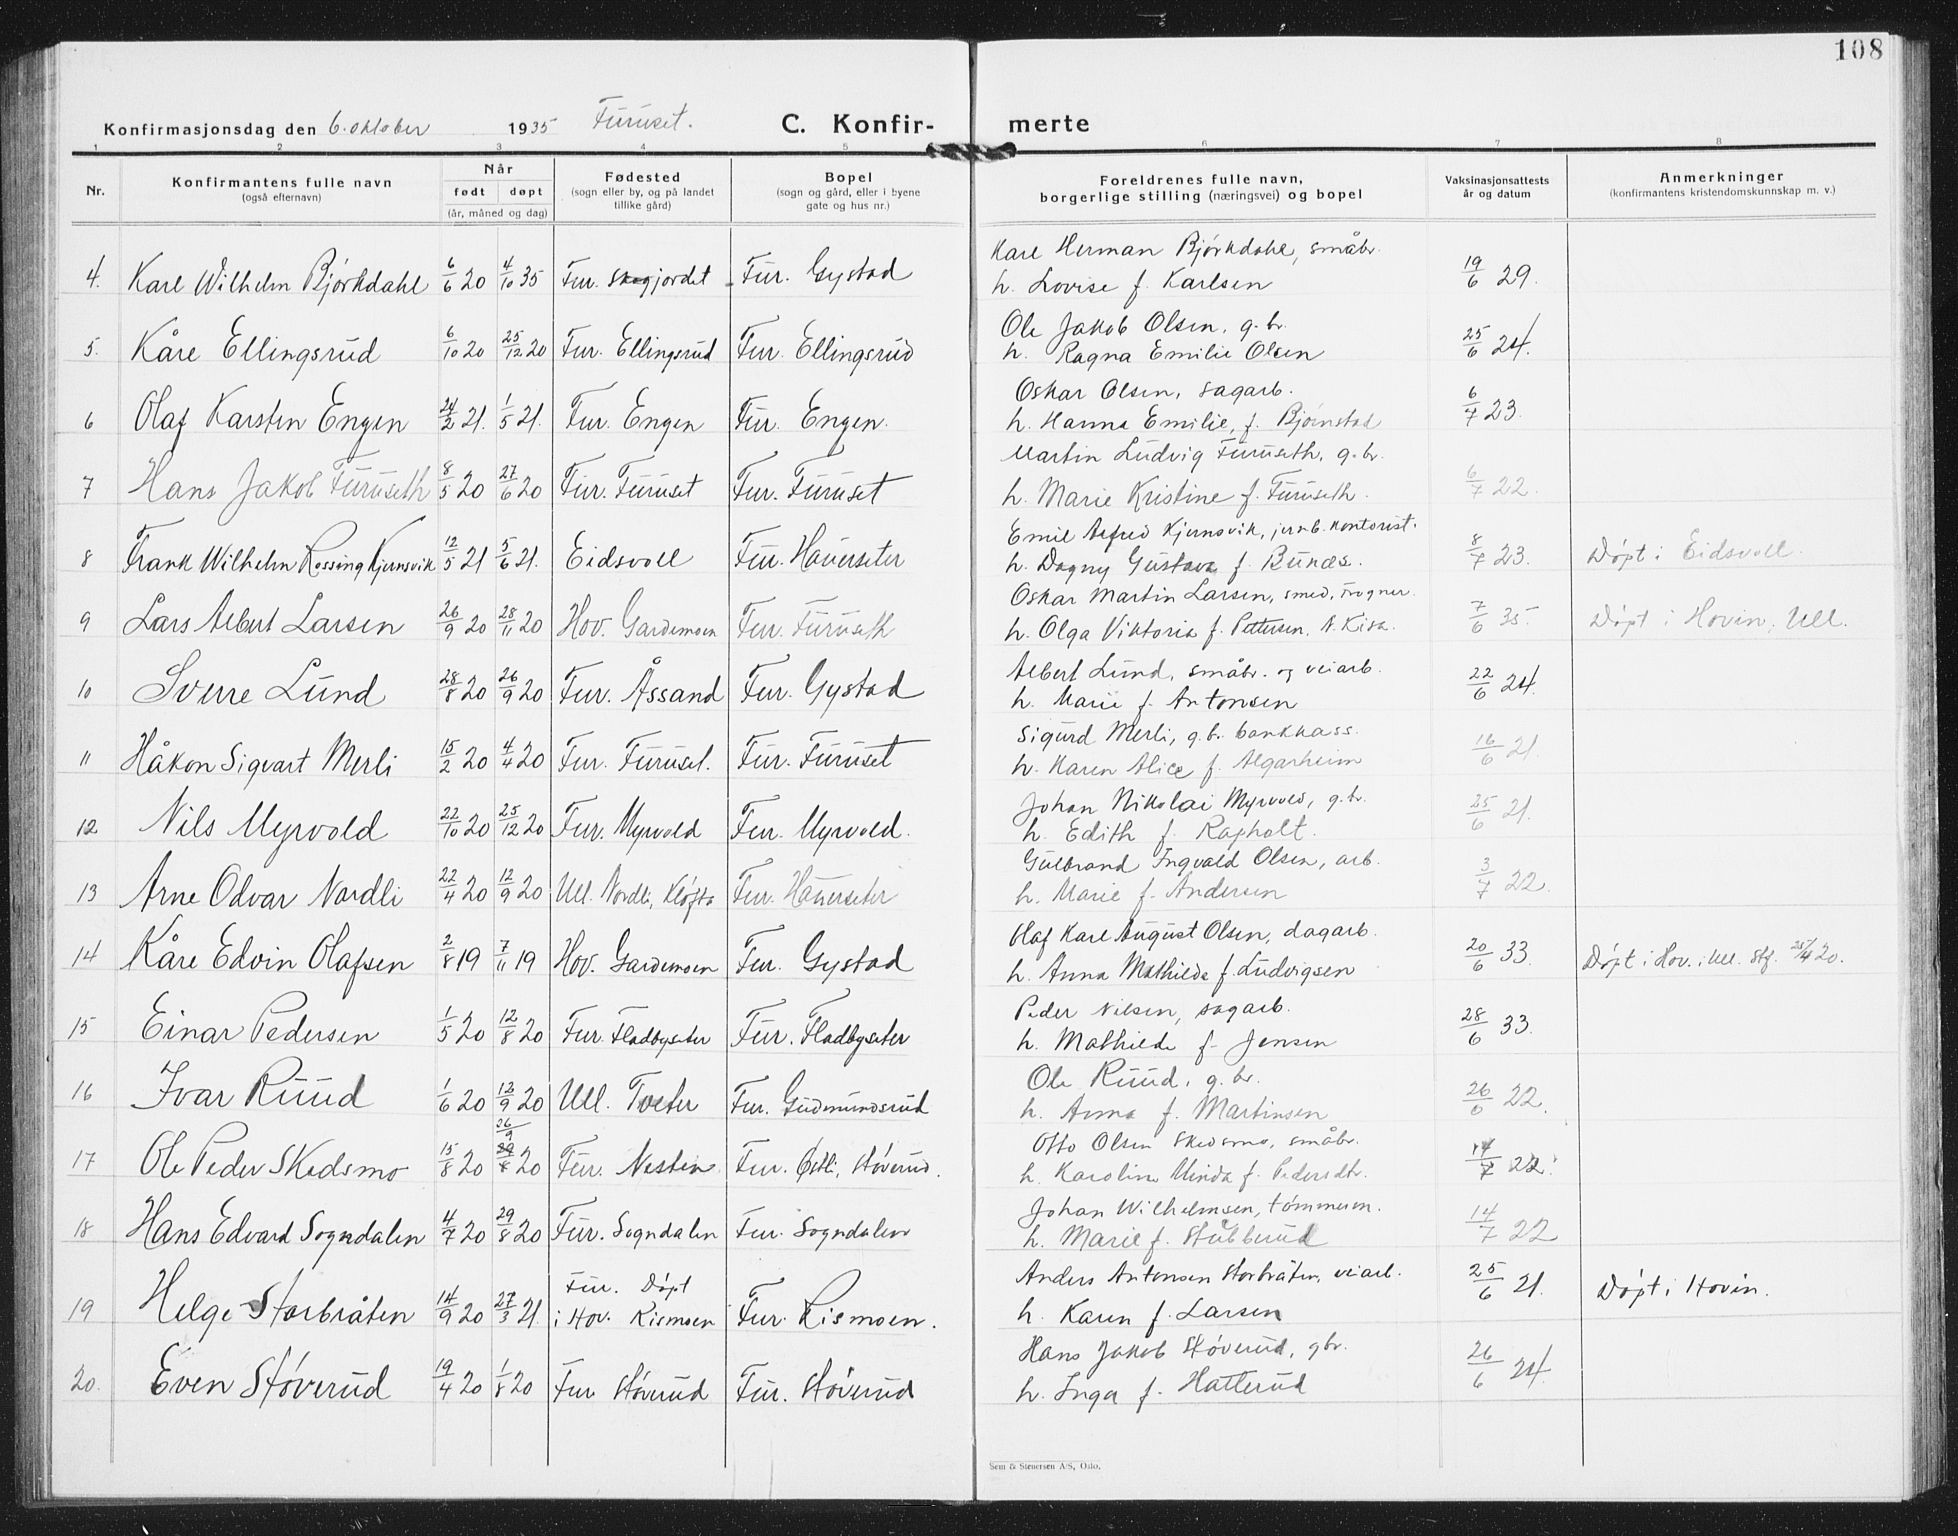 108
Konfirmasjonsdag den 6. oktober 1935 Furuset. C. Konfir- merte
1 2 3 4 5 6 7 8
Nr. Konfirmantens fulle navn (også efternavn) Når født døpt (år, måned og dag) Fødested (sogn eller by, og på landet tillike gård) Bopel (sogn og gård, eller i byene gate og hus nr.) Foreldrenes fulle navn, borgerlige stilling (næringsvei) og bopel Vaksinasjonsattests år og datum Anmerkninger (konfirmantens kristendomskunnskap m. v.)
4. Karl Wilhelm Bjørkdahl 6/6 20 4/10 35 Fur. Skogjordet Fur. Gystad Karl Herman Bjørkdahl, småbr. 19/6 29.
h. Lovise f. Karlsen
5. Kåre Ellingsrud 6/10 20 25/12 20 Fur. Ellingsrud Fur. Ellingsrud Ole Jakob Olsen, g.br. 25/6 24.
h. Ragna Emilie Olsen
6 Olaf Karsten Engen 24/2 21. 1/5 21. Fur. Engen Fur. Engen. Oskar Olsen, sagarb. 6/7 23.
h. Hanna Emilie, f. Bjørnstad
7 Hans Jakob Furuseth 8/5 20 27/6 20 Fur. Furuset Fur. Furuset Martin Ludvig Furuseth, g.br. 6/7 22.
h. Marie Kristine f. Furuseth.
8 Frank Wilhelm Rossing Kjernsvik 12/5 21 5/6 21. Eidsvoll Fur. Hauerseter Emil Alfred Kjernsvik, jernb.kontorist. 8/7 23. Døpt i Eidsvoll.
h. Dagny Gustava f. Bunæs.
9 Lars Albert Larsen 26/9 20 28/11 20 Hov. Gardemoen Fur. Furuseth Oskar Martin Larsen, smed, Frogner. 7/6 35. Døpt i Hovin, Ull.
h. Olga Viktoria f. Pettersen, N. Kisa.
10 Sverre Lund 28/8 20 26/9 20 Fur. Åssand Fur. Gystad Albert Lund, småbr. og veiarb. 22/6 24.
h. Marie f. Antonsen
11 Håkon Sigvart Merli 15/2 20 4/4 20 Fur. Furuset. Fur. Furuset Sigurd Merli, g.br. bankkass. 16/6 21.
h. Karen Alice f. Algarheim
12 Nils Myrvold 22/10 20 25/12 20 Fur. Myrvold Fur. Myrvold. Johan Nikolai Myrvold, g.br. 25/6 21.
h. Edith f. Rapholt.
13 Arne Odvar Nordli 22/4 20 12/9 20 Ull. Nordli, Kløfta Fur. Hauerseter Gulbrand Ingvald Olsen, arb. 3/7 22.
h. Marie f. Andersen
14 Kåre Edvin Olafsen 2/8 19 7/11 19 Hov. Gardemoen Fur. Gystad Olaf Karl August Olsen, dagarb. 20/6 33. Døpt i Hov. i Ull. Stf. 25/4 20.
h. Anna Mathilde f. Ludvigsen
15 Einar Pedersen 1/5 20 12/8 20 Fur. Fladbyseter Fur. Fladbyseter Peder Nilsen, sagarb. 28/6 33.
h. Mathilde f. Jensen
16 Ivar Ruud 1/6 20 12/9 20 Ull. Tveter Fur. Gudmundsrud Ole Ruud, g.br. 26/6 22.
h. Anna f. Martinsen
17 Ole Peder Skedsmo 15/8 20 26/9 20 Fur. Nesten Fur. Østli, Støverud. Otto Olsen Skedsmo, småbr. 14/7 22.
h. Karoline Minda f. Pedersdtr.
18 Hans Edvard Sogndalen 4/7 20 29/8 20 Fur. Sogndalen Fur. Sogndalen Johan Wilhelmsen, tømmerm. 14/7 22
h. Marie f. Stubberud
19 Helge Storbråten 14/9 20 27/3 21 Fur. Døpt i Hov. Rismoen Fur. Rismoen. Anders Antonsen Storbråten, veiarb. 25/6 21. Døpt i Hovin.
h. Karen f. Larsen
20. Even Støverud 19/4 20 1/8 20 Fur Støverud Fur. Støverud Hans Jakob Støverud, gbr. 26/6 24.
h. Inga f. Hatterud
Sem & Stenersen A/S, Oslo.